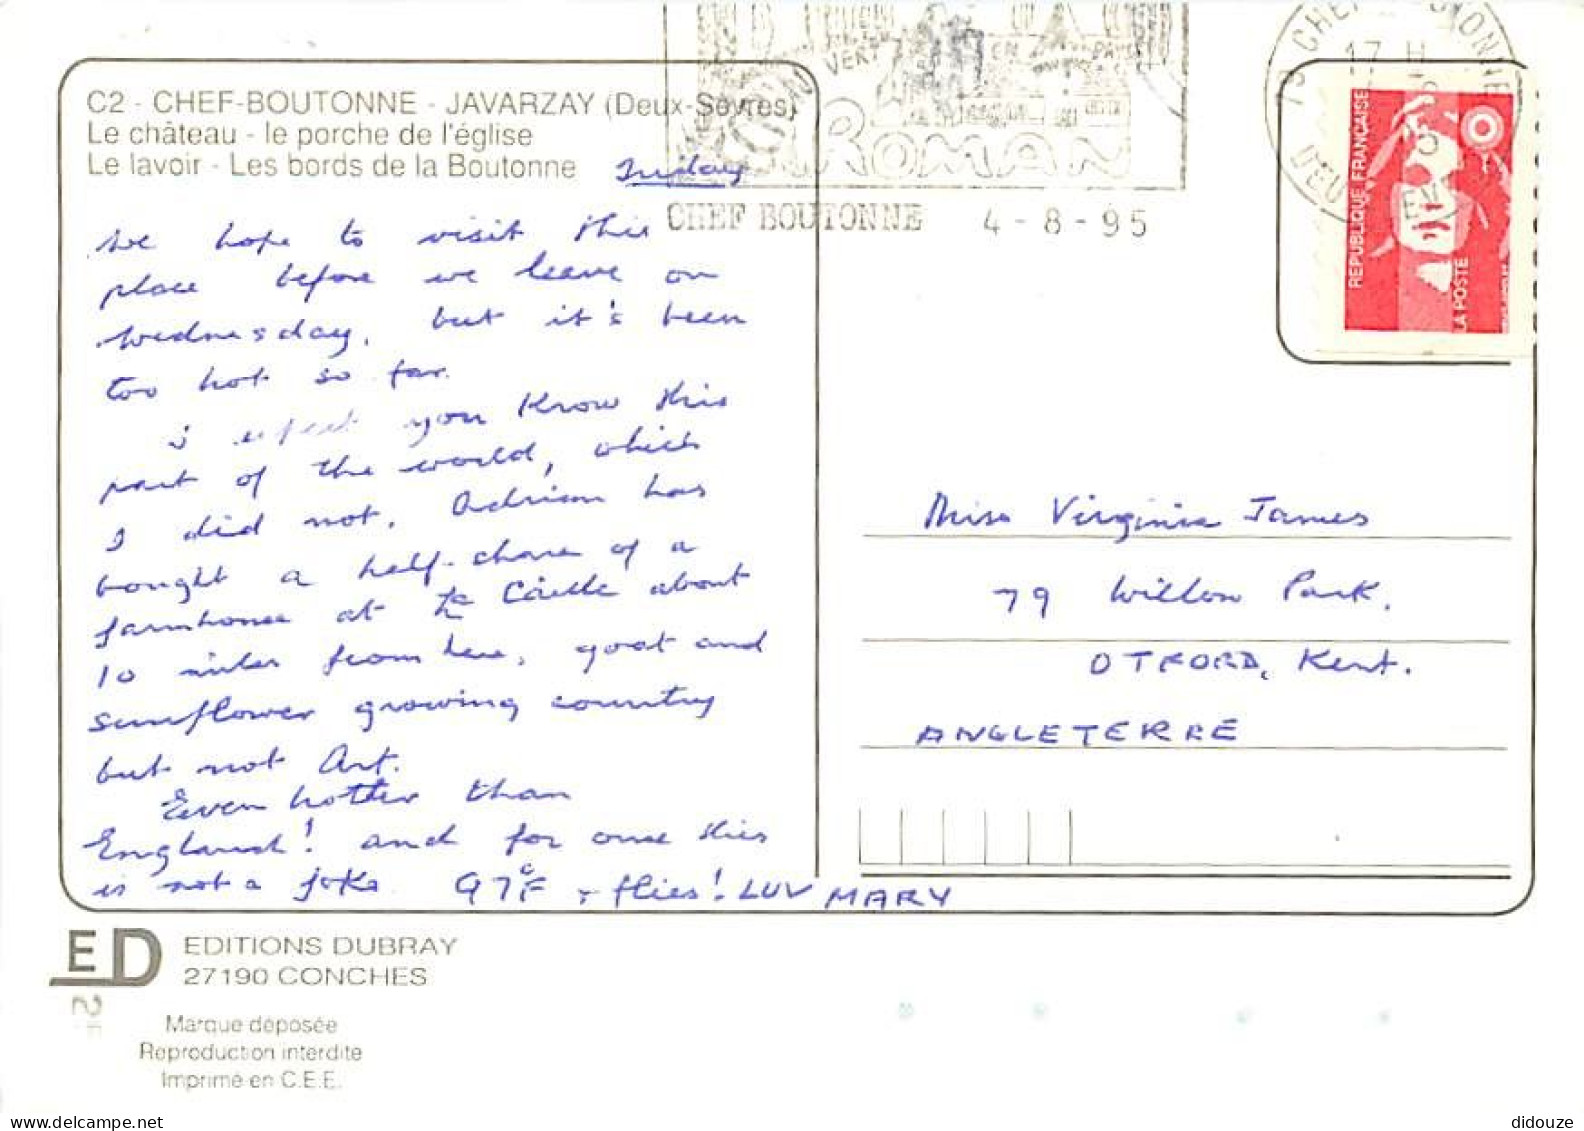 C2 - CHEF-BOUTONNE - JAVARZAY (Deux-Sèvres)
Le château - le porche de l'église
Le lavoir - Les bords de la Boutonne
Friday
We hope to visit this
place before we leave on
Wednesday, but it's been
too hot so far.
I expect you know this
part of the world, which
I did not. Adrian has
bought a half-share of a
farmhouse at about
10 miles from here, goat and
sunflower growing country
but not Art.
Even hotter than
England! and for once this
is not a joke 97°F + flies! LUV MARY
VERT EN
ROMAN
CHEF BOUTONNE 4-8-95
17 H
REPUBLIQUE FRANÇAISE
LA POSTE
Miss Virginia James
79 Willow Park.
OTFORD, Kent.
ANGLETERRE
ED EDITIONS DUBRAY
27190 CONCHES
Marque déposée
Reproduction interdite
Imprimé en C.E.E.
didouze